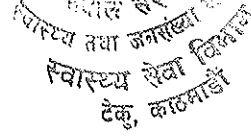 नेपाल सर
स्वास्थ्य तथा जनसंख्या
स्वास्थ्य सेवा विभाग
टेकु, काठमाडौं